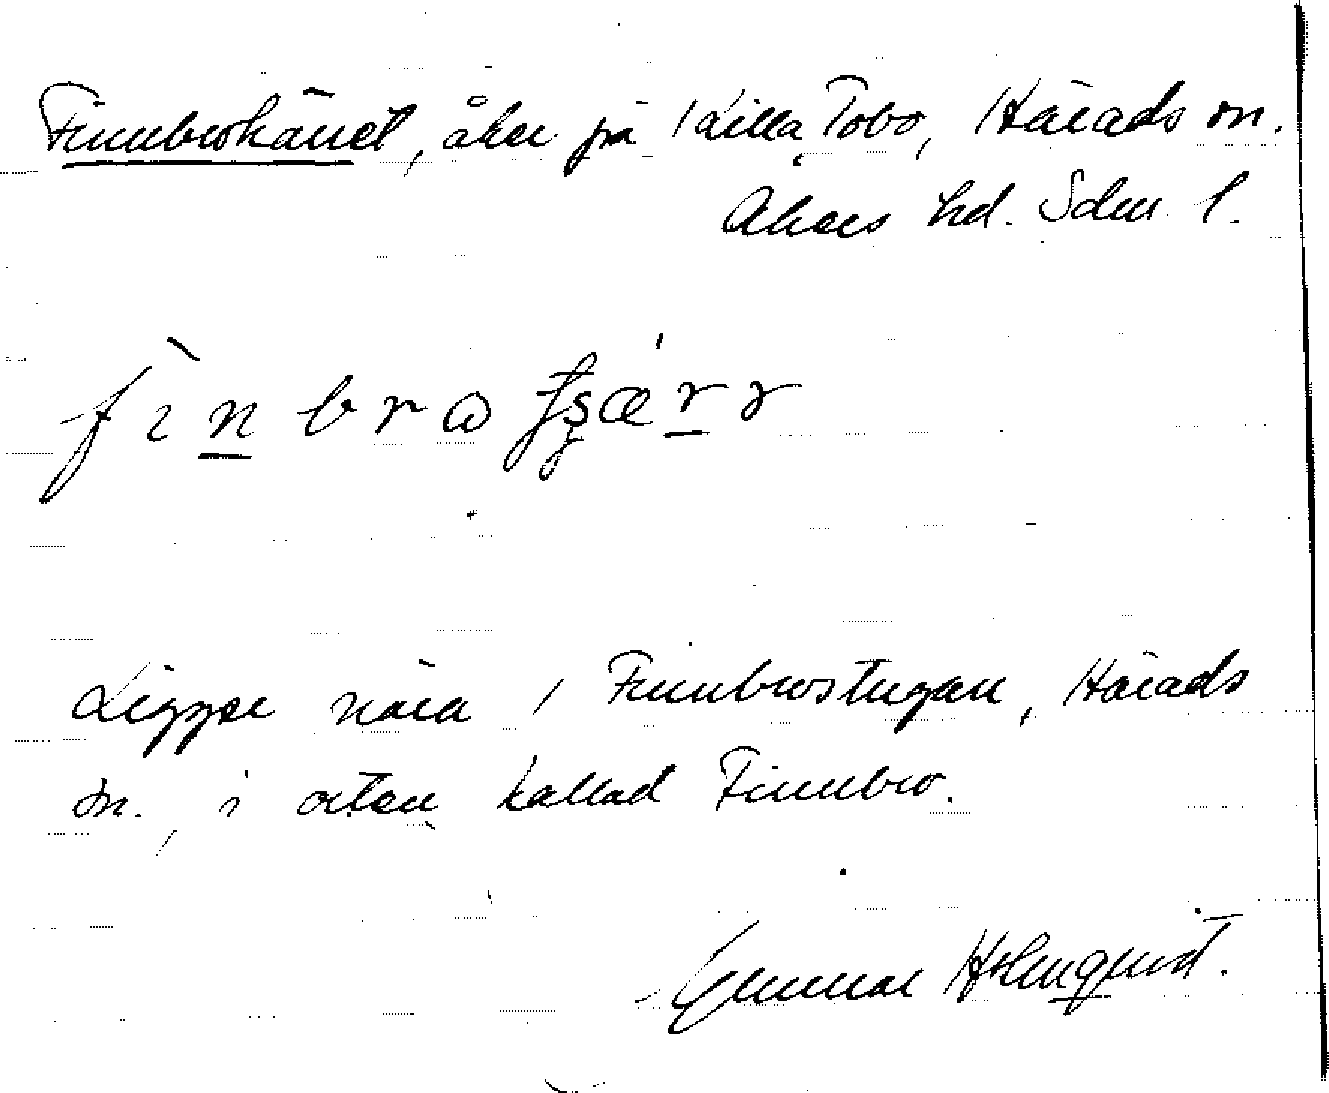 Finnbrokärret, åker på Lilla Tobo, Härads sn.
Åkers hd. Sdm. l.
fìnbrω ʂǽrr
Ligger nära Finnbrostugan, Härads
sn., i orten kallad Finnbro.
Gunnar Holmquist.